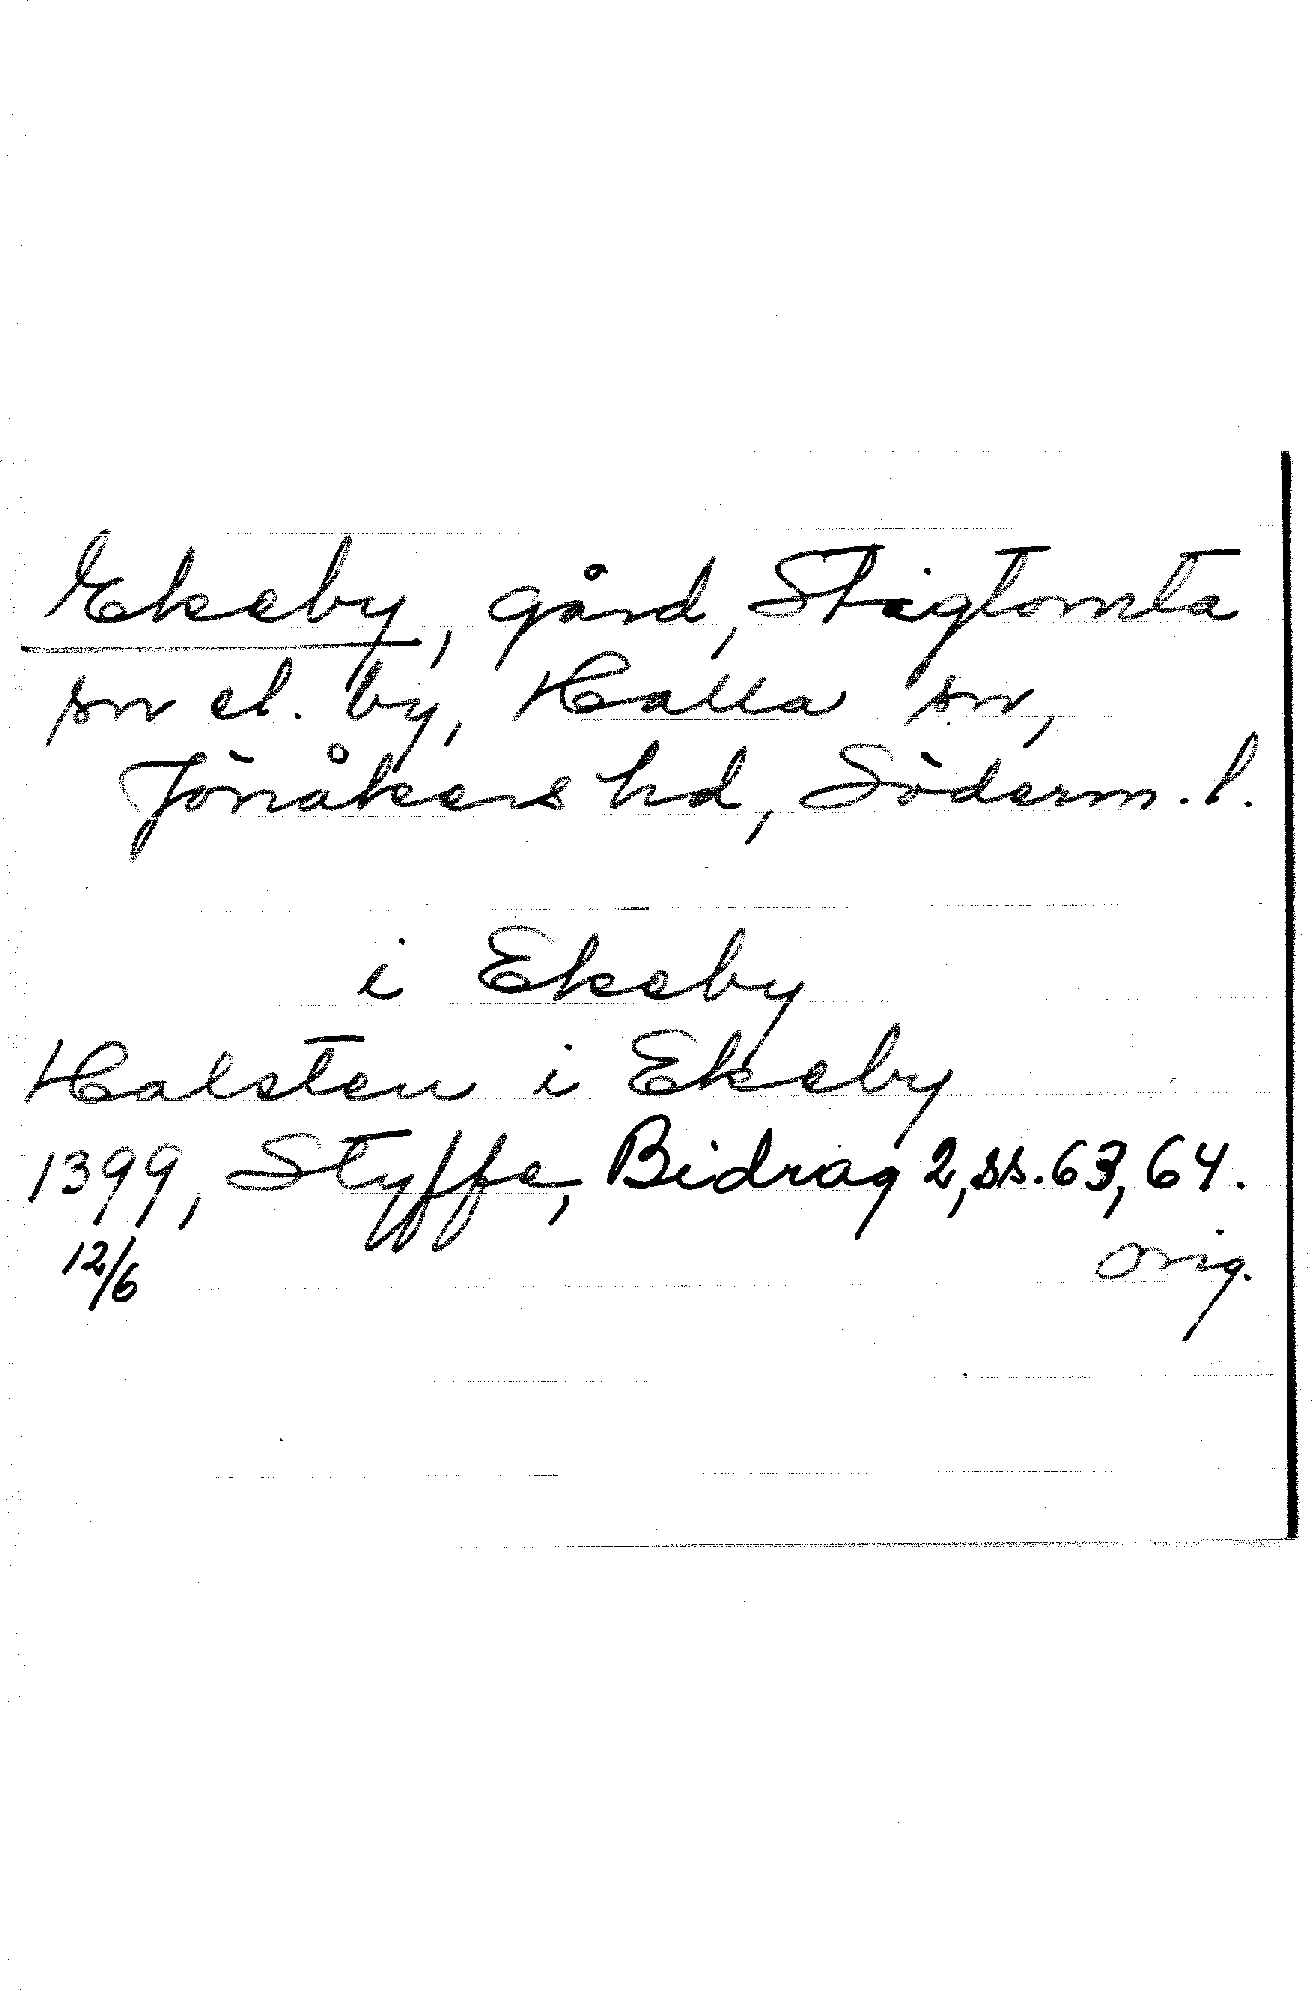 Ekeby, gård, Stigtomta
sn el. by, Halla sn,
Jönåkers hd, Söderm. l.
i Ekeby
Halsten i Ekeby
1399, Styffe, Bidrag 2, ss. 63, 64.
12/6 orig.